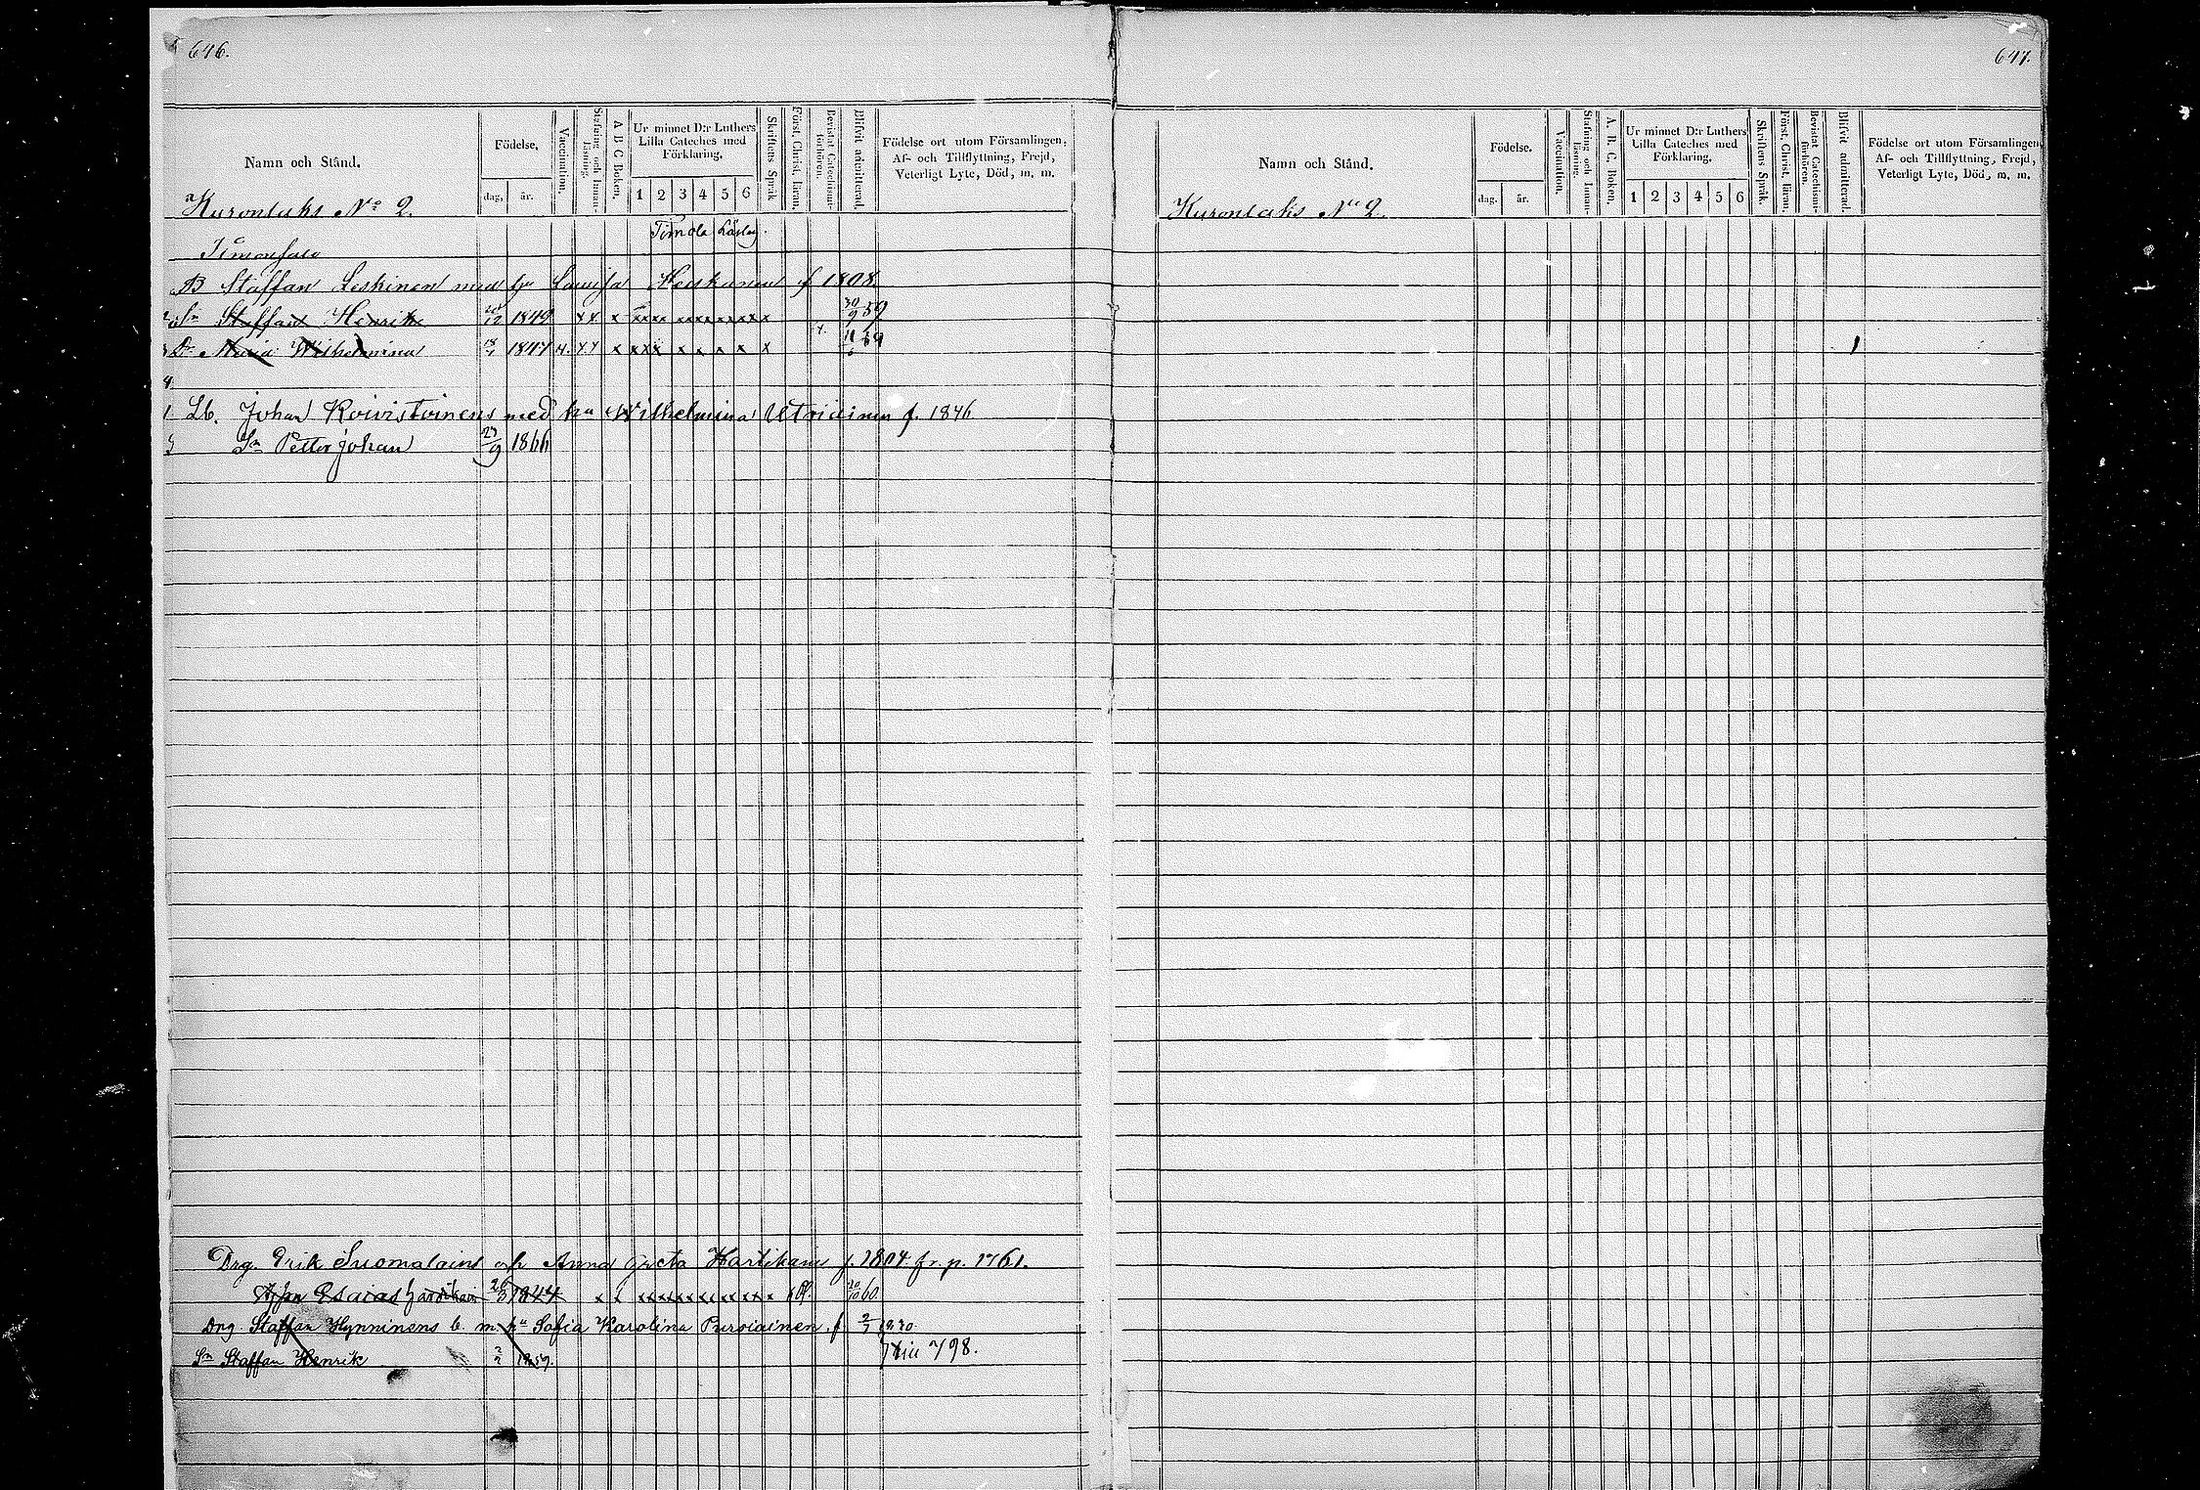 646.
Namn och Stånd.
Födelse,
dag, år.
Vaccination.
Stafning och Innanläsning.
A B C Boken.
Ur minnet D:r Luthers Lilla Cateches med Förklaring.
1 2 3 4 5 6
Skriftens Språk
Först. Christ. läran.
Bevistat Catechismiförhören.
Blifvit admitterad.
Födelse ort utom Församlingen, Af- och Tillflyttning, Frejd, Veterligt Lyte, Död, m. m.
Kuronlaks No 2.
Timola Läslag.
Timonsalo
B Staffan Leskinen med hu Lovisa Keiskanen f 1808.
2 Sn Staffan Henrik 12 1849 x x x xx xx x x x x x x x x 30/9 59
3 Dr Maria Wilhelmina 18 1847 x x x x x x x x x x x x 59
4
1 Lb. Johan Koivistoinens med hu Wilhelmina Utriainen f. 1846
2 Sn Petter Johan 23/9 1866
Drg. Erik Suomalains och Anna Greta Hartikain f. 1804 fr. p. 1761.
Esaias 1844 x x x x x x x x x x x x x x 60
Drg. Staffan Hynninens b. m hu Sofia Karolina Pursiainen. f 2/7 1830
Sn Staffan Henrik 2/2 1859. 798.
647.
Namn och Stånd.
Födelse.
dag. år.
Vaccination.
Stafning och Innanläsning.
A. B. C. Boken.
Ur minnet D:r Luthers Lilla Cateches med Förklaring.
1 2 3 4 5 6
Skriftens Språk.
Först. Christ. läran.
Bevistat Catechismiförhören.
Blifvit admitterad.
Födelse ort utom Församlingen Af- och Tillflyttning, Frejd, Veterligt Lyte, Död, m. m.
Kuronlaks No 2.